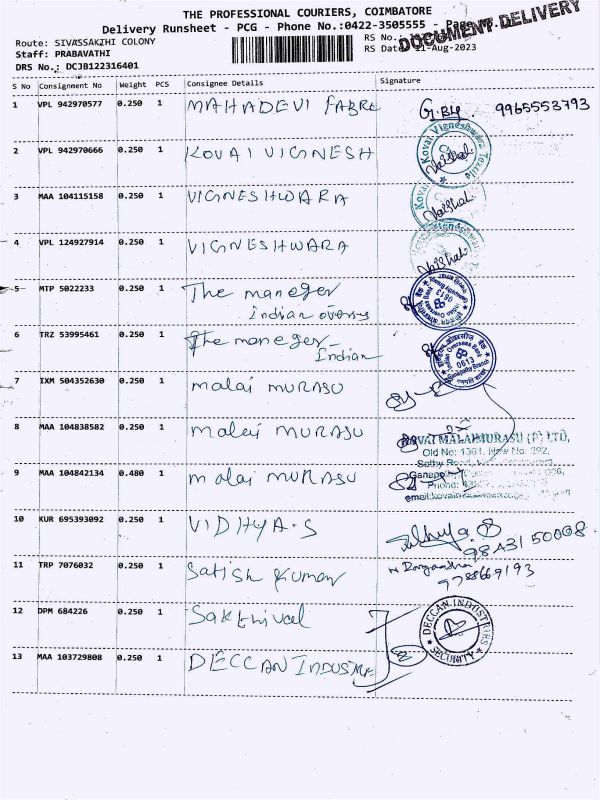 THE PROFESSIONAL COURIERS, COIMBATORE
Delivery Runsheet - PCG - Phone No.:0422-3505555 - Page
DOCUMENT DELIVERY
Route: SIVASSAKTHI COLONY
RS No.
Staff: PRABAVATHI
RS Date 11-Aug-2023
DRS No.: DCJB122316401
S No Consignment No Weight PCS Consignee Details Signature
1 VPL 942970577 0.250 1 MAHADEVI FABRE 9965553793
2 VPL 942970666 0.250 1 KOVAI VIGNESH
Kovai Vigneshwara Textile
Vaishali
3 MAA 104115158 0.250 1 VIGNESHWARA
Vaishali
4 VPL 124927914 0.250 1 VIGNESHWARA
Vaishali
5 MTP 5022233 0.250 1 The maneger
indian overses
0613
6 TRZ 53995461 0.250 1 The maneger
Indian
Indian Overseas Bank
0613
Ganapathy Branch
7 IXM 504352630 0.250 1 malai MURASU
8 MAA 104838582 0.250 1 malai MURASU
KOVAI MALAIMURASU (P) LTD,
Old No: 1301, New No: 292,
9 MAA 104842134 0.480 1 malai MURASU
Phone:
10 KUR 695393092 0.250 1 VIDHYA.S
98431 50008
11 TRP 7076032 0.250 1 Satish kumar
9788669193
12 DPM 684226 0.250 1 Sakthivel
DECCAN INDUSTRIES
SECURITY
13 MAA 103729808 0.250 1 DECCAN INDUSTRE